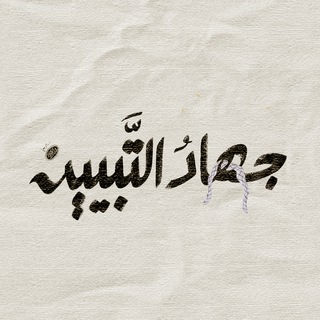 جهادُ التَّبيين